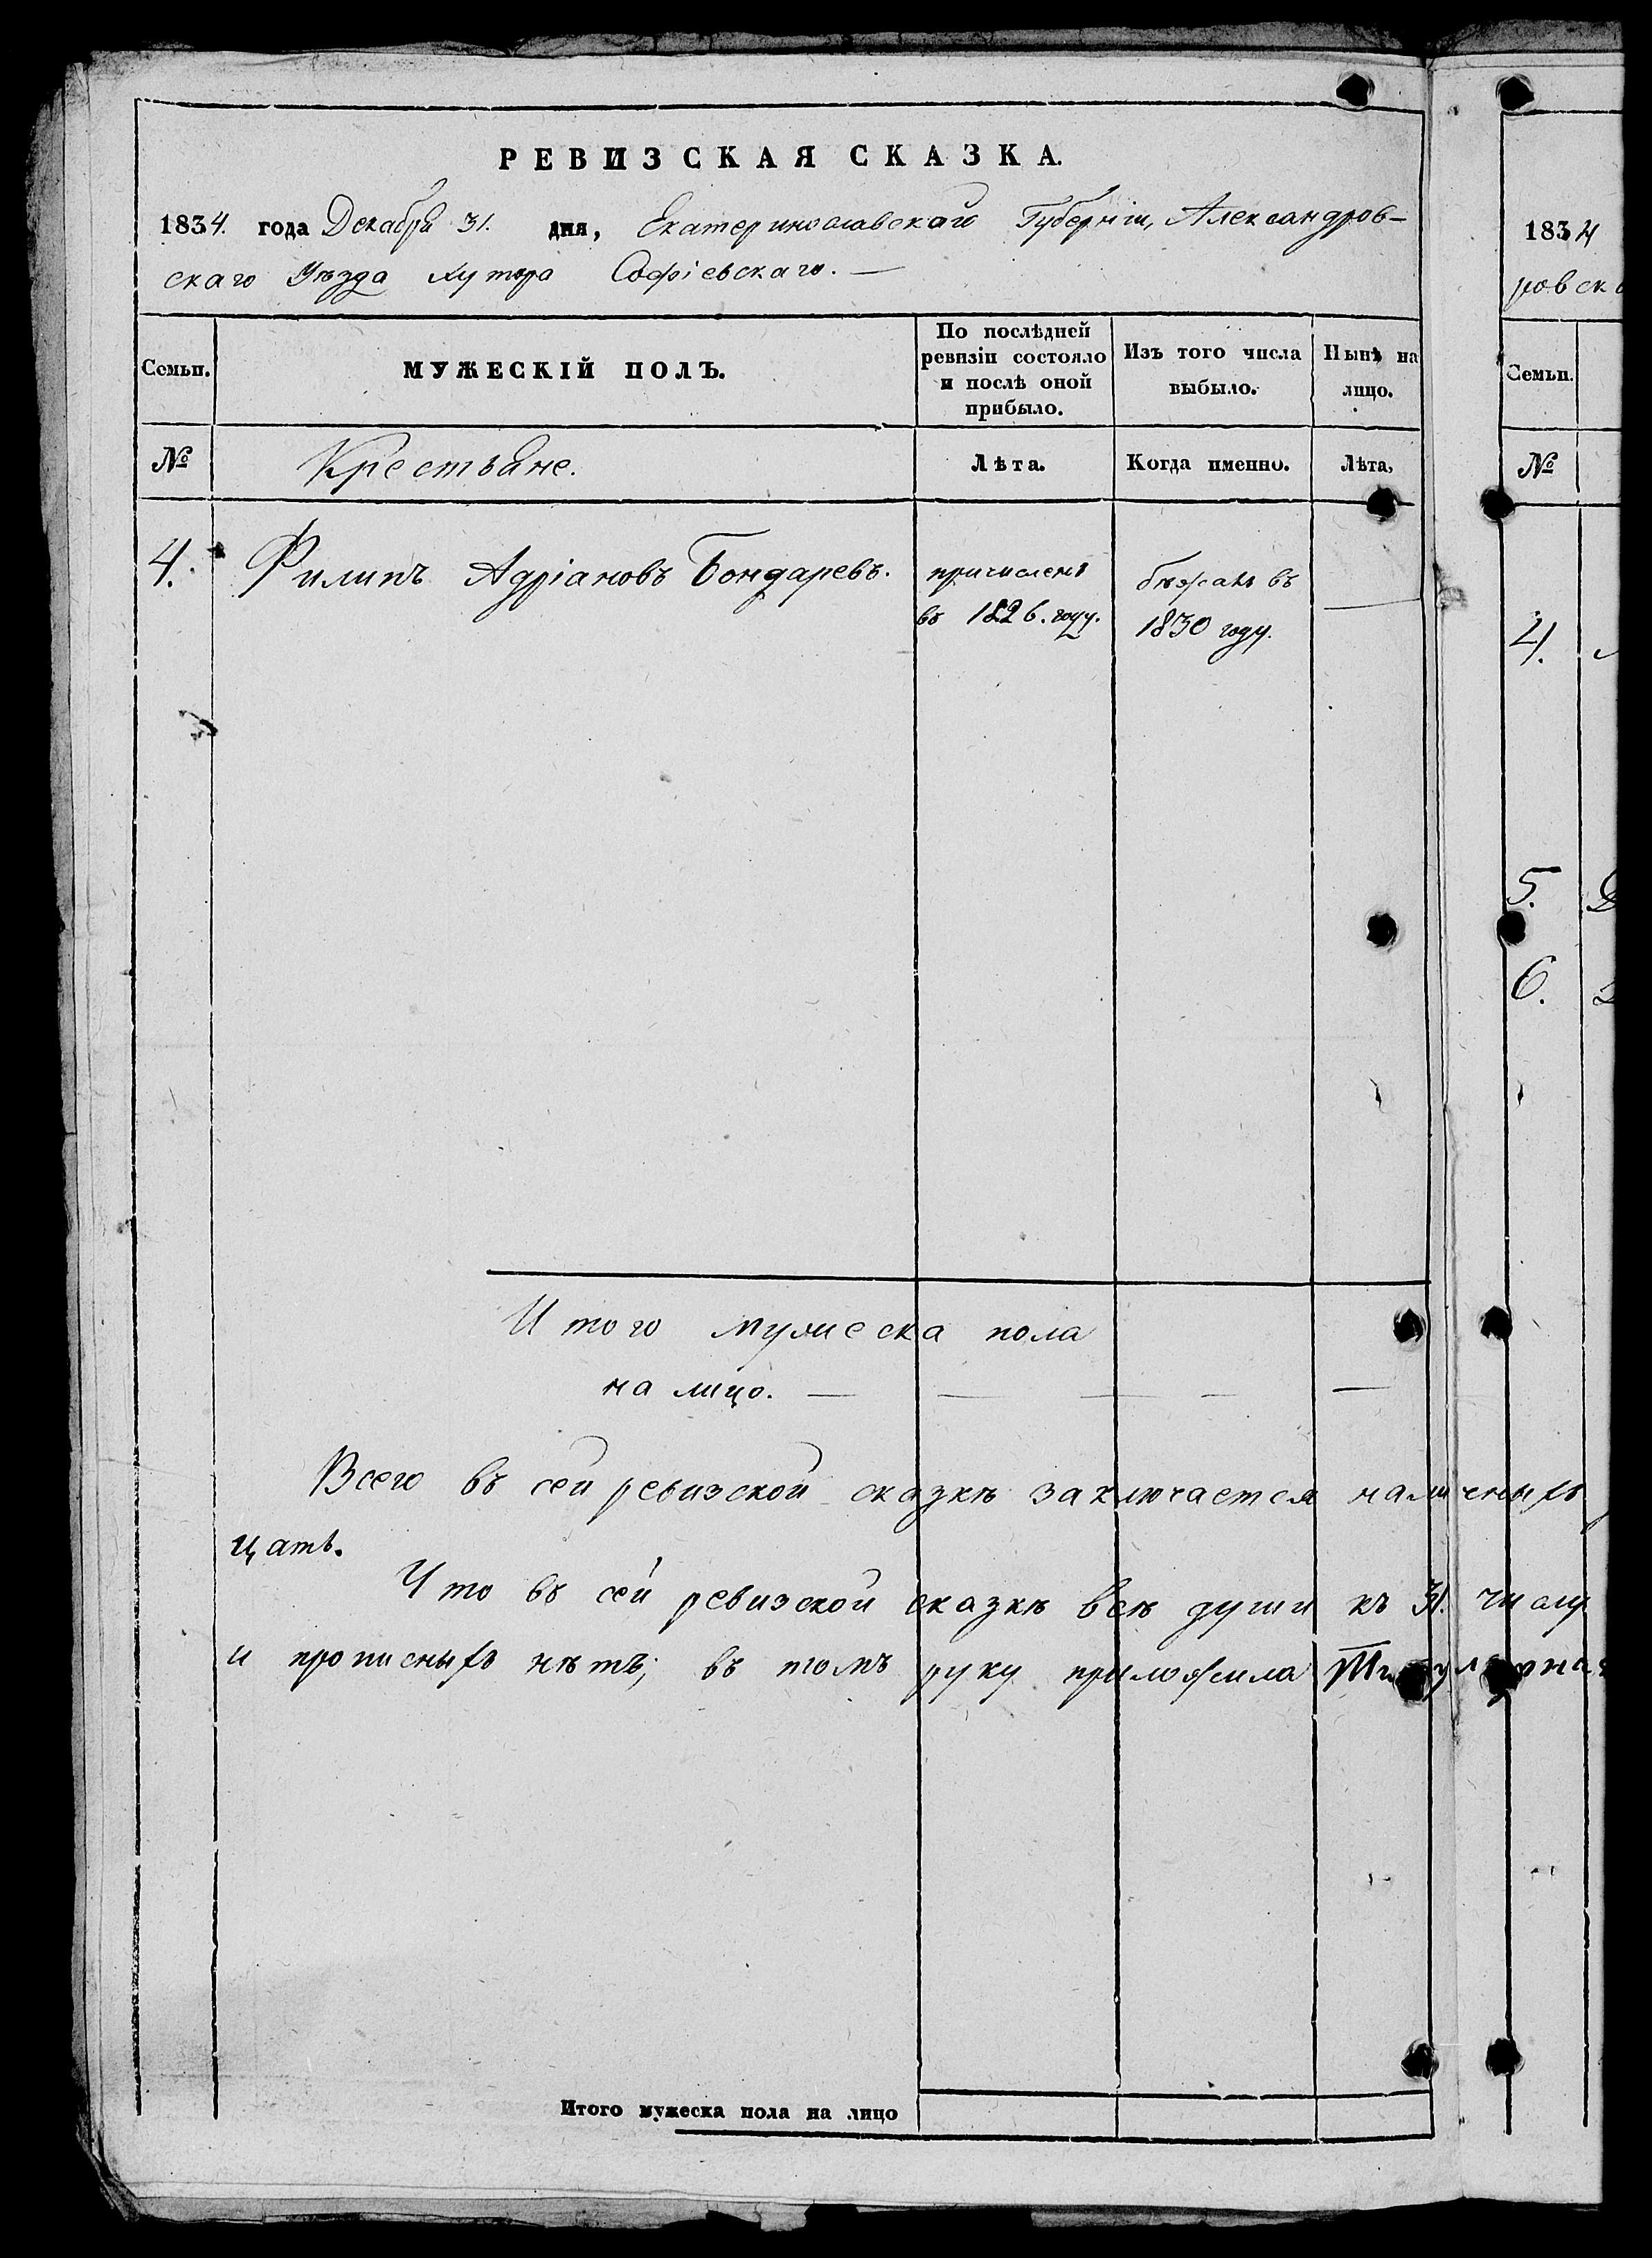 РЕВИЗСКАЯ СКАЗКА.
1834. года Декабря 31. дня, Екатеринославскаго Губерніи, Александров-
скаго Уѣзда Хутора Софіевскаго. —
Семьи.
МУЖЕСКІЙ ПОЛЪ.
По послѣдней
ревизіи состояло
и послѣ оной
прибыло.
Изъ того числа
выбыло.
Нынѣ на
лицо.
№
Крестьяне.
Лѣта.
Когда именно.
Лѣта,
4. Филипъ Адріановъ Бондаревъ.
причисленъ
въ 1826. году.
бѣжалъ въ
1830 году.
—
Итого мужеска пола
на лицо. — — — — —
Всего въ сей ревизской сказкѣ заключается наличныхъ
цать.
Что въ сей ревизской сказкѣ всѣ души къ 31. числу
и прописныхъ нѣтъ; въ томъ руку приложила
Итого мужеска пола на лицо
1834
ровск
Семьи.
№
4.
5.
6.